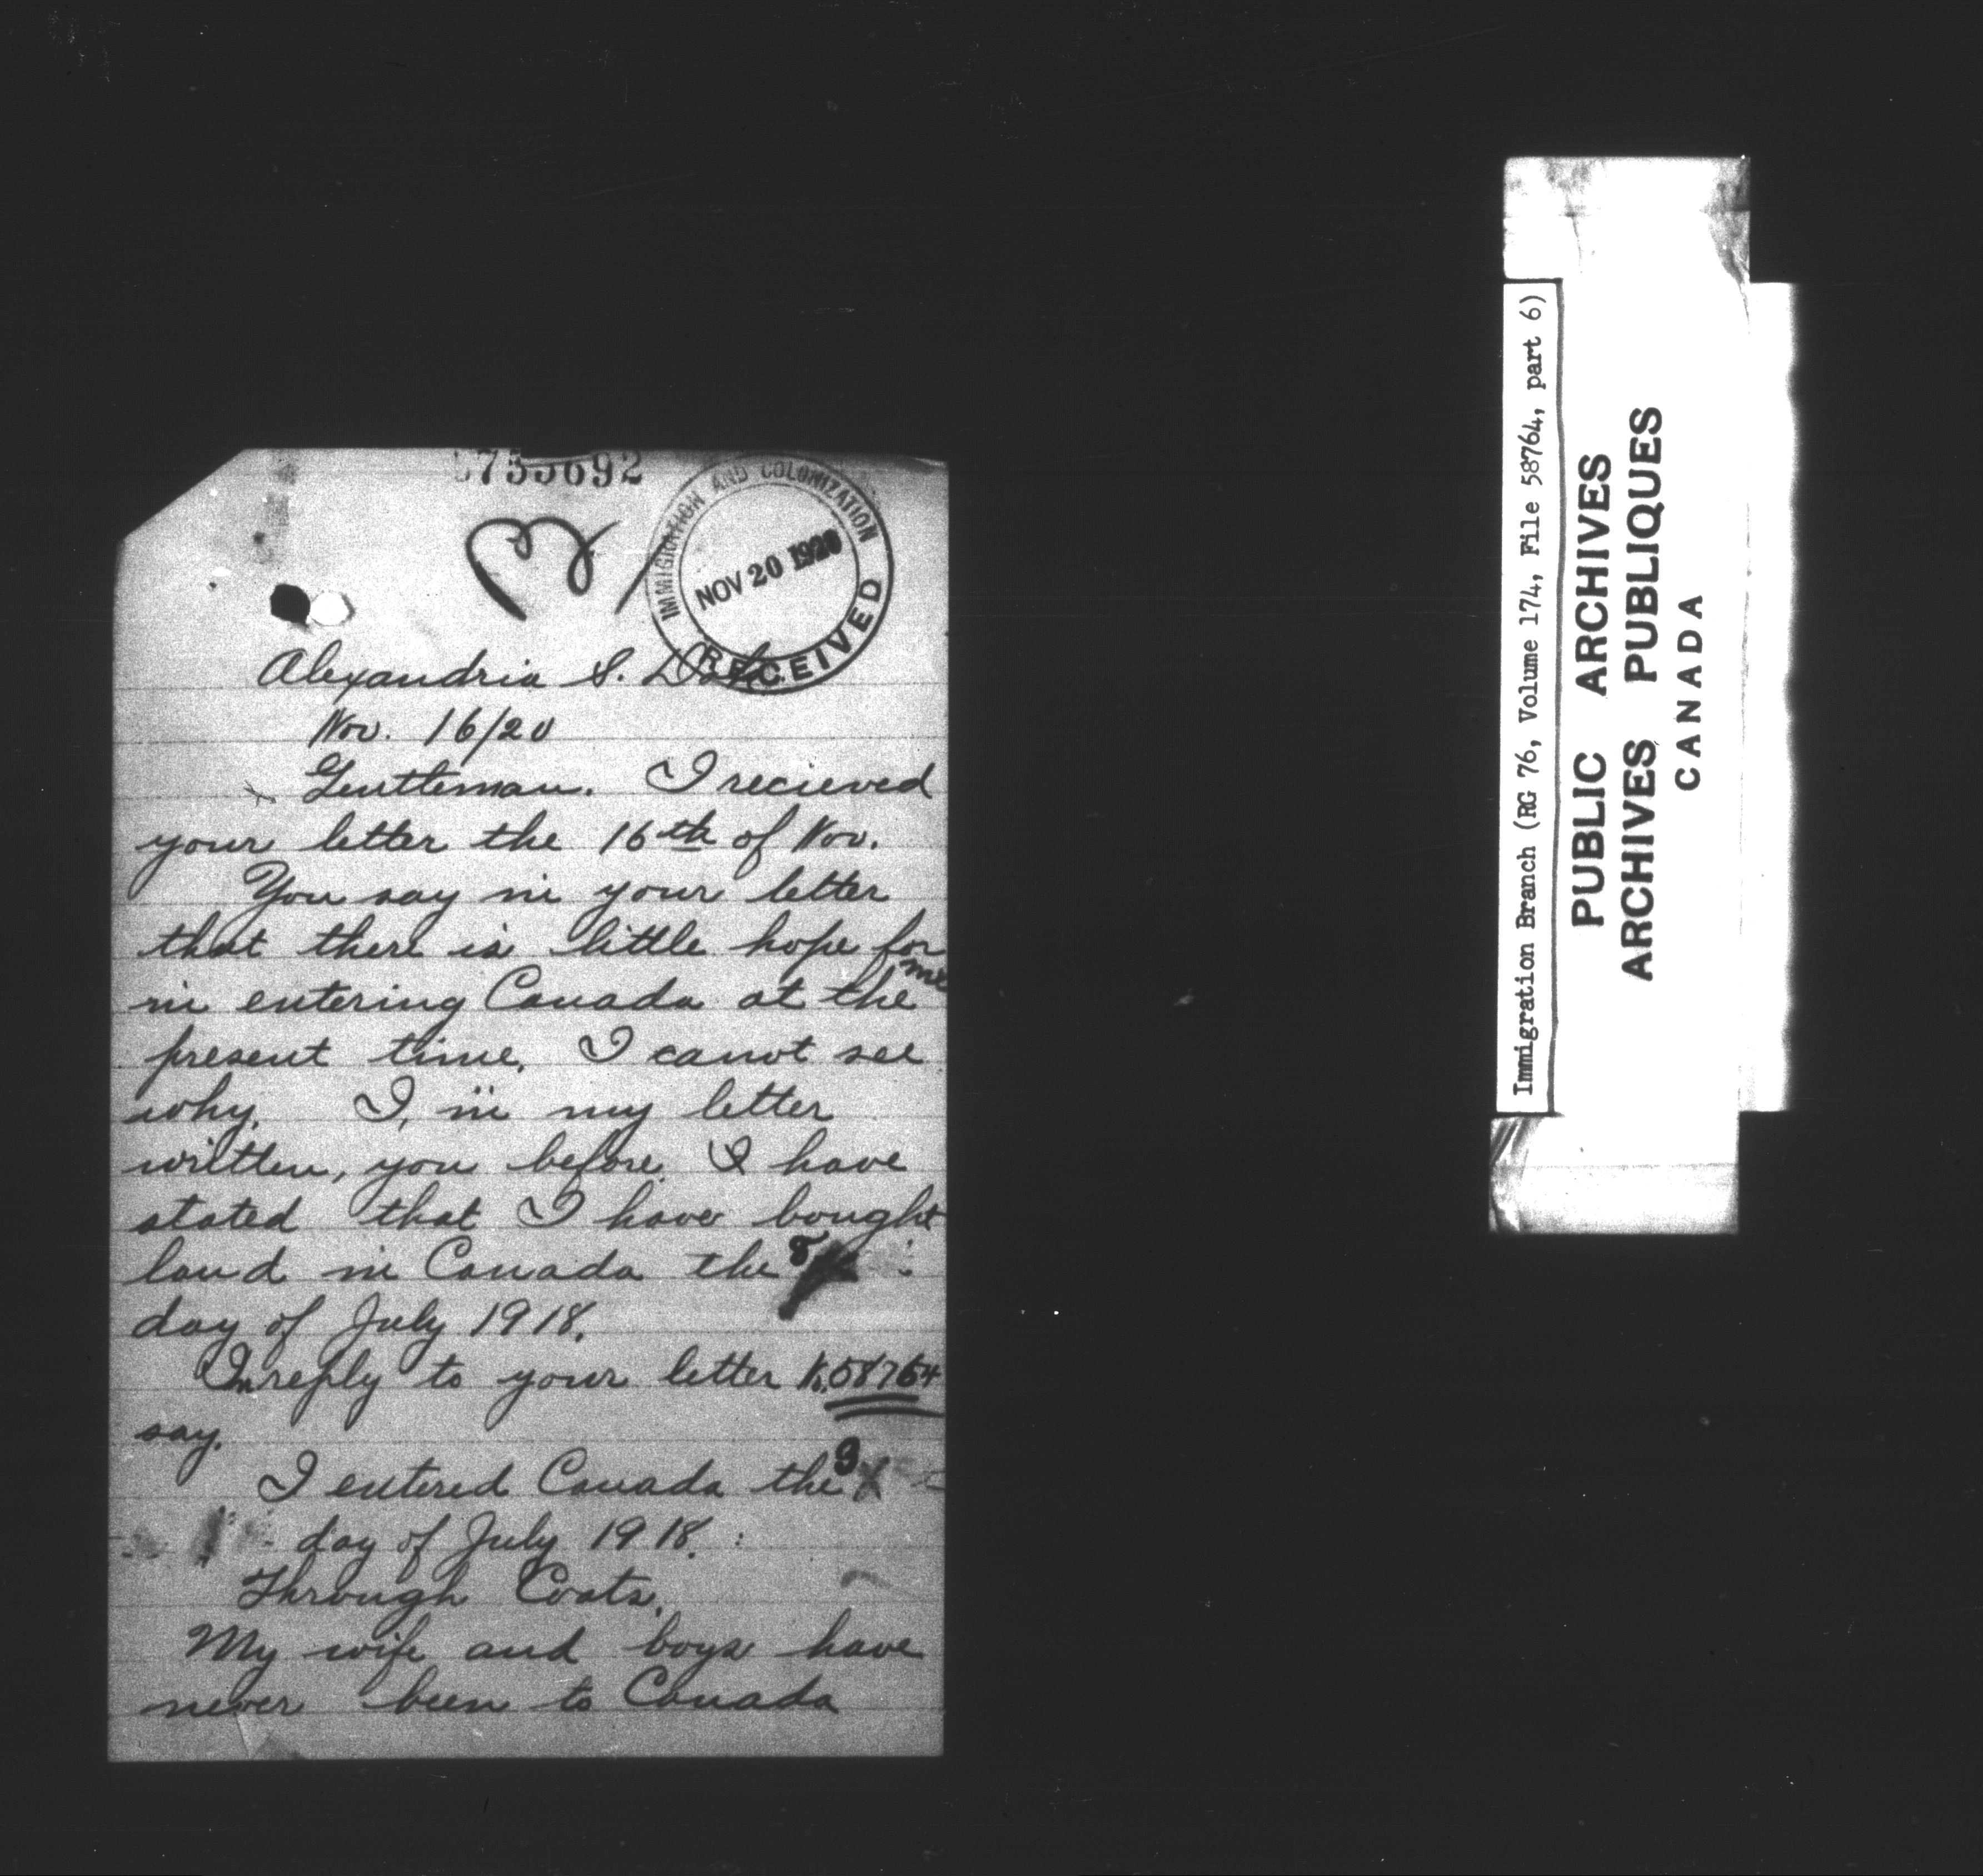 755692
IMMIGRATION AND COLONIZATION
NOV 20 1920
RECEIVED
Alexandria S. Dak.
Nov. 16/20
Gentleman. I recieved
your letter the 16th of Nov.
You say in your letter
that there is little hope for me
in entering Canada at the
present time. I canot see
why. I, in my letter
written, you before. I have
stated that I have bought
land in Canada the 8
day of July 1918.
In reply to your letter No. 58764
say.
I entered Canada the 3
day of July 1918.
Through Coats.
My wife and boys have
never been to Canada
Immigration Branch (RG 76, Volume 174, File 58764, part 6)
PUBLIC ARCHIVES
ARCHIVES PUBLIQUES
CANADA